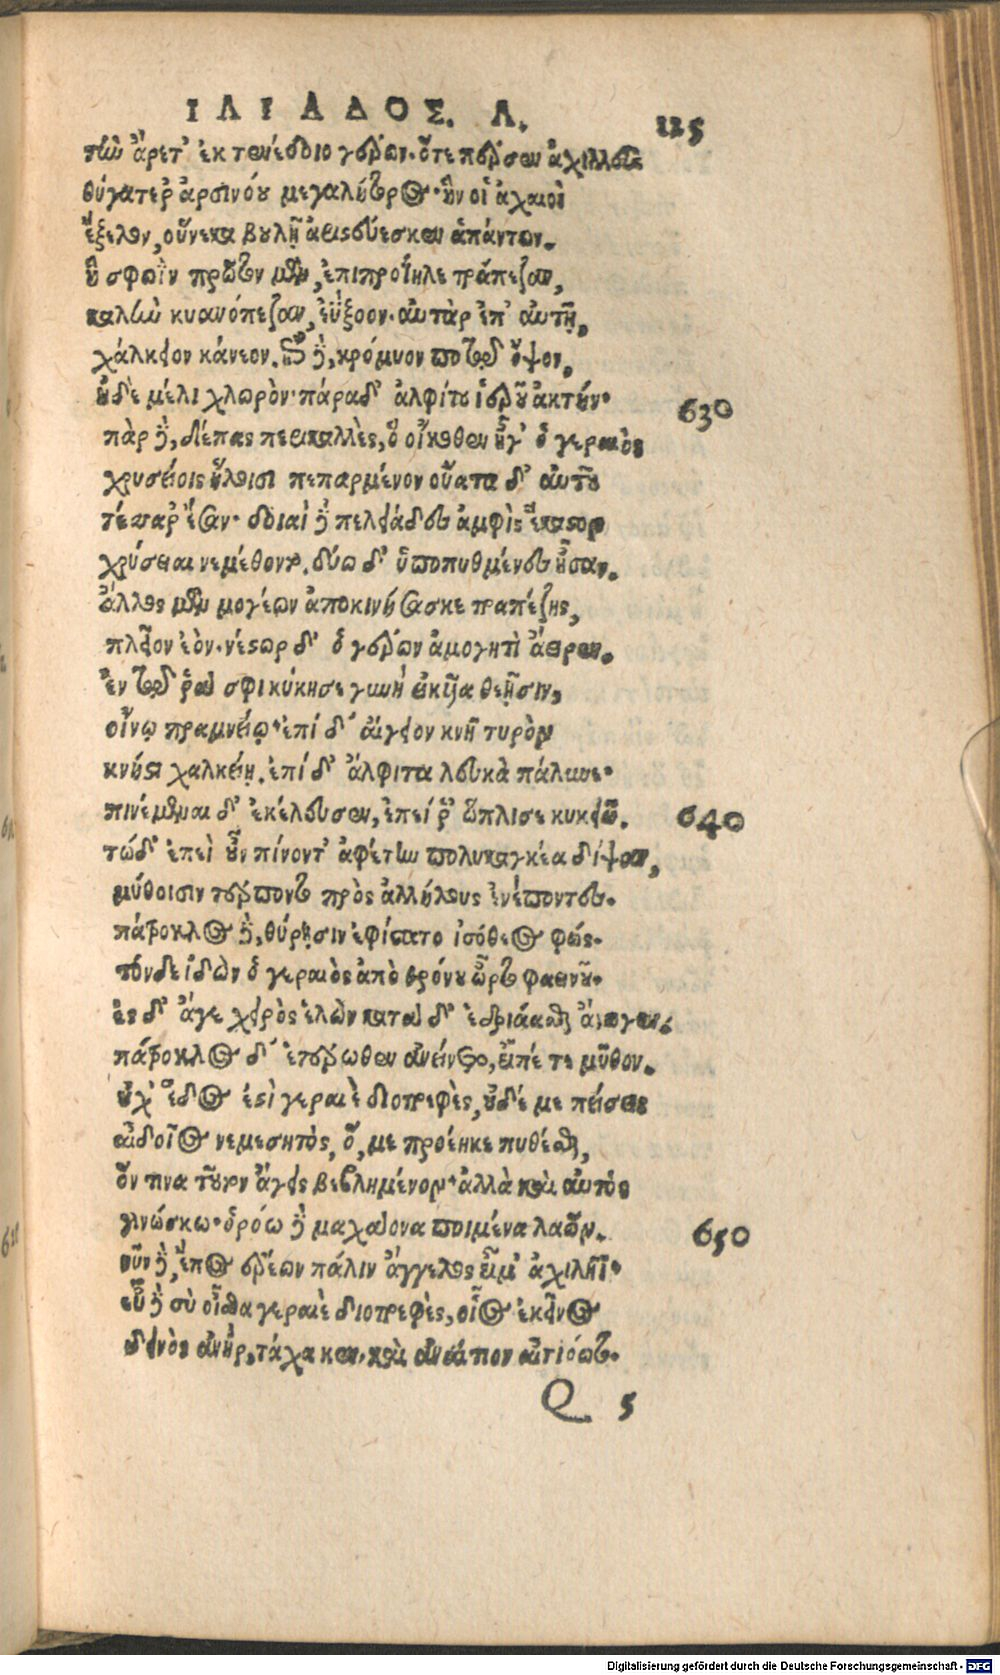 ΙΛΙΑΔΟΣ. Λ. 125
τὴν ἄρετ' ἐκ τενέδοιο γέρων· ὅτε πέρσεν ἀχιλλεὺς
θύγατερ ἀρσινόου μεγαλήτορος· ἣν οἱ ἀχαιοὶ
ἔξελον, οὕνεκα βουλῇ ἀριστεύεσκεν ἁπάντων.
ἥ σφωῒν πρῶτον μὲν, ἐπιπροΐηλε τράπεζαν,
καλὴν κυανόπεζαν, ἐΰξοον· αὐτὰρ ἐπ' αὐτῇ,
χάλκειον κάνεον. ἐπὶ δὲ, κρόμυον ποτῷ ὄψον,
ἠδὲ μέλι χλωρὸν· πάραδ' ἀλφίτου ἱεροῦ ἀκτήν·
630
πὰρ δὲ, δέπας περικαλλὲς, ὃ οἴκοθεν ἦγ' ὁ γεραιὸς
χρυσείοις ἥλοισι πεπαρμένον οὔατα δ' αὐτοῦ
τέσσαρ' ἔσαν· δοιαὶ δὲ πελειάδες ἀμφὶς ἕκαστον
χρύσειαι νεμέθοντο. δύω δ' ὑποπυθμένες ἦσαν.
ἄλλος μὲν μογέων ἀποκινήσασκε τραπέζης,
πλεῖον ἐὸν· νέστωρ δ' ὁ γέρων ἀμογητὶ ἄειρεν.
ἐν τῷ ῥά σφι κύκησε γυνὴ εἰκυῖα θεῇσιν,
οἴνῳ πραμνείῳ· ἐπί δ' αἴγειον κνῆ τυρὸν
κνήστι χαλκείῃ. ἐπί δ' ἄλφιτα λευκὰ πάλυνε·
πινέμεναι δ' ἐκέλευσεν, ἐπεί ῥ' ὥπλισε κυκειῶ.
640
τώδ' ἐπεὶ οὖν πίνοντ' ἀφέτην πολυκαγκέα δίψαν,
μύθοισιν τέρποντο πρὸς ἀλλήλους ἐνέποντες·
πάτροκλος δὲ, θύρῃσιν ἐφίστατο ἰσόθεος φώς·
τὸνδε ἰδὼν ὁ γεραιὸς ἀπὸ θρόνου ὦρτο φαεινοῦ·
ἐς δ' ἄγε χειρὸς ἑλὼν κατὰ δ' ἑδριάασθαι ἄνωγεν.
πάτροκλος δ' ἑτέρωθεν ἀναίνετο, εἶπέ τε μῦθον.
οὐχ' ἕδος ἐστὶ γεραιὲ διοτρεφὲς, οὐδέ με πείσεις
αἰδοῖος νεμεσητὸς, ὅ, με προέηκε πυθέσθαι,
ὅν τινα τοῦτον ἄγεις βεβλημένον· ἀλλὰ καὶ αὐτὸς
γινώσκω· ὁρόω δὲ μαχάονα ποιμένα λαῶν.
650
νῦν δὲ, ἔπος ἐρέων πάλιν ἄγγελος εἶμ' ἀχιλῆϊ·
εὖ δὲ σὺ οἶσθα γεραιὲ διοτρεφὲς, οἷος ἐκεῖνος
δεινὸς ἀνὴρ, τάχα κεν· καὶ ἀναίτιον αἰτιόωτο·
Q 5
Digitalisierung gefördert durch die Deutsche Forschungsgemeinschaft - DFG